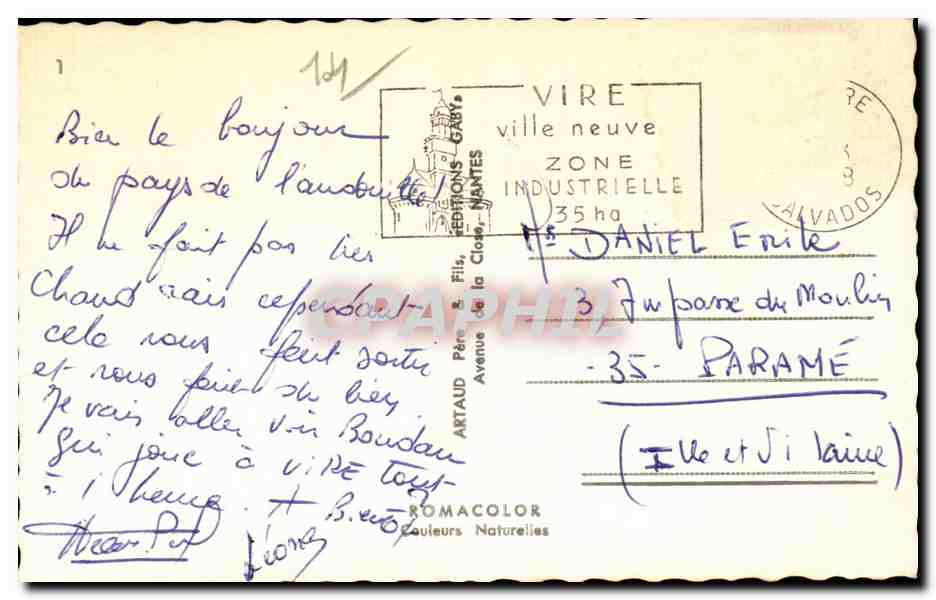 1
14
Bien le bonjour
du pays de l'andouille!
Il ne fait pas très
Chaud mais cependant
cela nous fait sortir
et nous faire du bien
Je vais aller voir Boudan
qui joue à VIRE tout
à 1 heure. A Bientôt
Léone
ARTAUD Père & Fils, «EDITIONS GABY»
Avenue de la Close, NANTES
VIRE
ville neuve
ZONE
INDUSTRIELLE
35 ha
RE
8
CALVADOS
Mr DANIEL Emile
3, Impasse du Moulin
-35- PARAMÉ
(Ille et Vilaine)
ROMACOLOR
Couleurs Naturelles
CPAPHIL